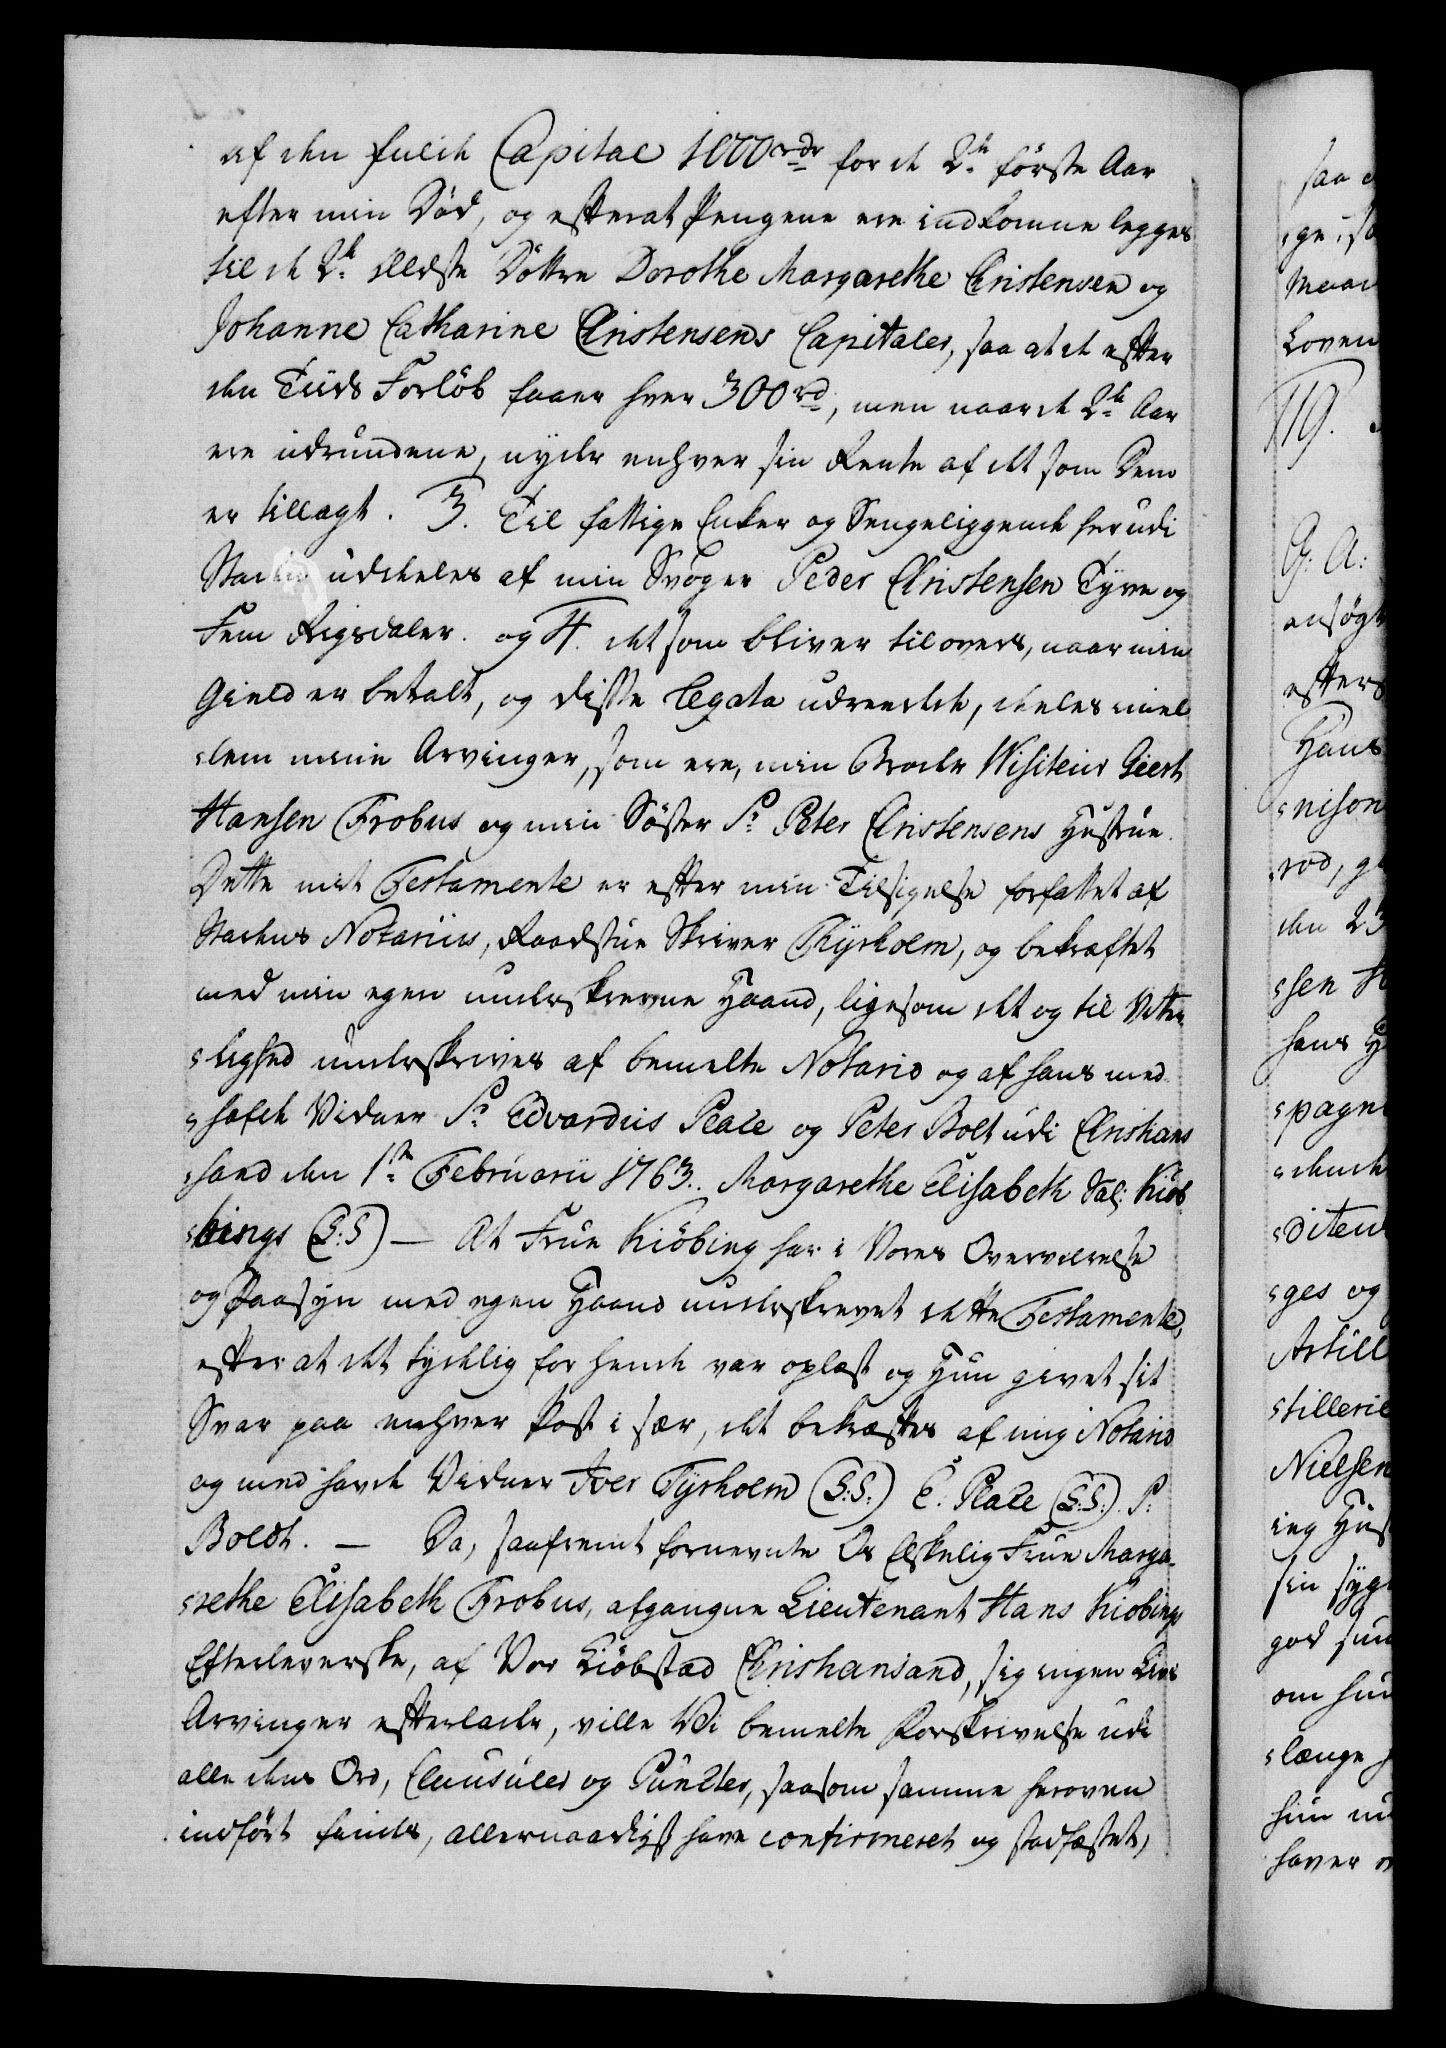 af den fulde Capital 1000 rdr for de 2de förste Aar
efter min Död, og efterat Pengene ere indkomne legges
til de 2de Eldste Döttre Dorothe Margarethe Christensen og
Johanne Catharine Christensens Capitaler, saa at de efter
den Tiids Forlöb faaer hver 300 rd, men naar de 2de Aar
ere udrundene, nyder enhver sin Rente af det som Dem
er tillagt. 3. Til fattige Enker og Sengeliggende her udi
Staden uddeeles af min Svoger Peder Christensen Tyve og
Fem Rigsdaler. og 4. det som bliver tilovers, naar min
Gield er betalt, og disse Legata udreedet, deeles imel
lem mine Arvinger, som ere, min Broder Visiteur Geert
Hansen Frobus og min Söster Sr Peter Christensens Hustrue.
Dette mit Testamente er efter min Tilsigelse forfattet af
Stadens Notarius, Raadstue Skriver Thyrholm, og bekræftet
med min egen underskrevne Haand, ligesom det og til Vitter
lighed underskrives af bemelte Notario og af hans med
hafde Vidner Sr Edvardus Plade og Peter Bolt udi Christians
sand den 1te Februarii 1763. Margarethe Elisabeth Sal: Kiöb
bings (L:S) — At Frue Kiöbing har i Vores Overværelse
og Paasyn med egen Haand underskrevet dette Testamente,
efter at det tydelig for hende var oplæst og Hun givet sit
Svar paa enhver Post i sær, det bekræftes af mig Notario
og med havde Vidner Iver Tyrholm (L:S:) E. Plade (L:S:). P:
Boldt. — Da, saafremt fornevnte Os Elskelig Frue Marga-
rethe Elisabeth Frobus, afgangne Lieutenant Hans Kiobings
Efterleverske, af Vor Kiöbstad Christiansand, sig ingen Livs
Arvinger efterlader, ville Vi bemelte Forskrivelse udi
alle dens Ord, Clausuler og Puncter, saasom samme heroven
indfört findes, allernaadigst have confirmeret og stadfæstet,
saa
ge, so
Maar
Loven
119.
G: A:
ansögt
efters
Hans
nison
rod, g
den 23
sen
hans H
pagni
dende
diteur
ges og
Artill
tillerie
Nielsen
ing Hus
sin syg
god sun
om hun
længe
hun
haver